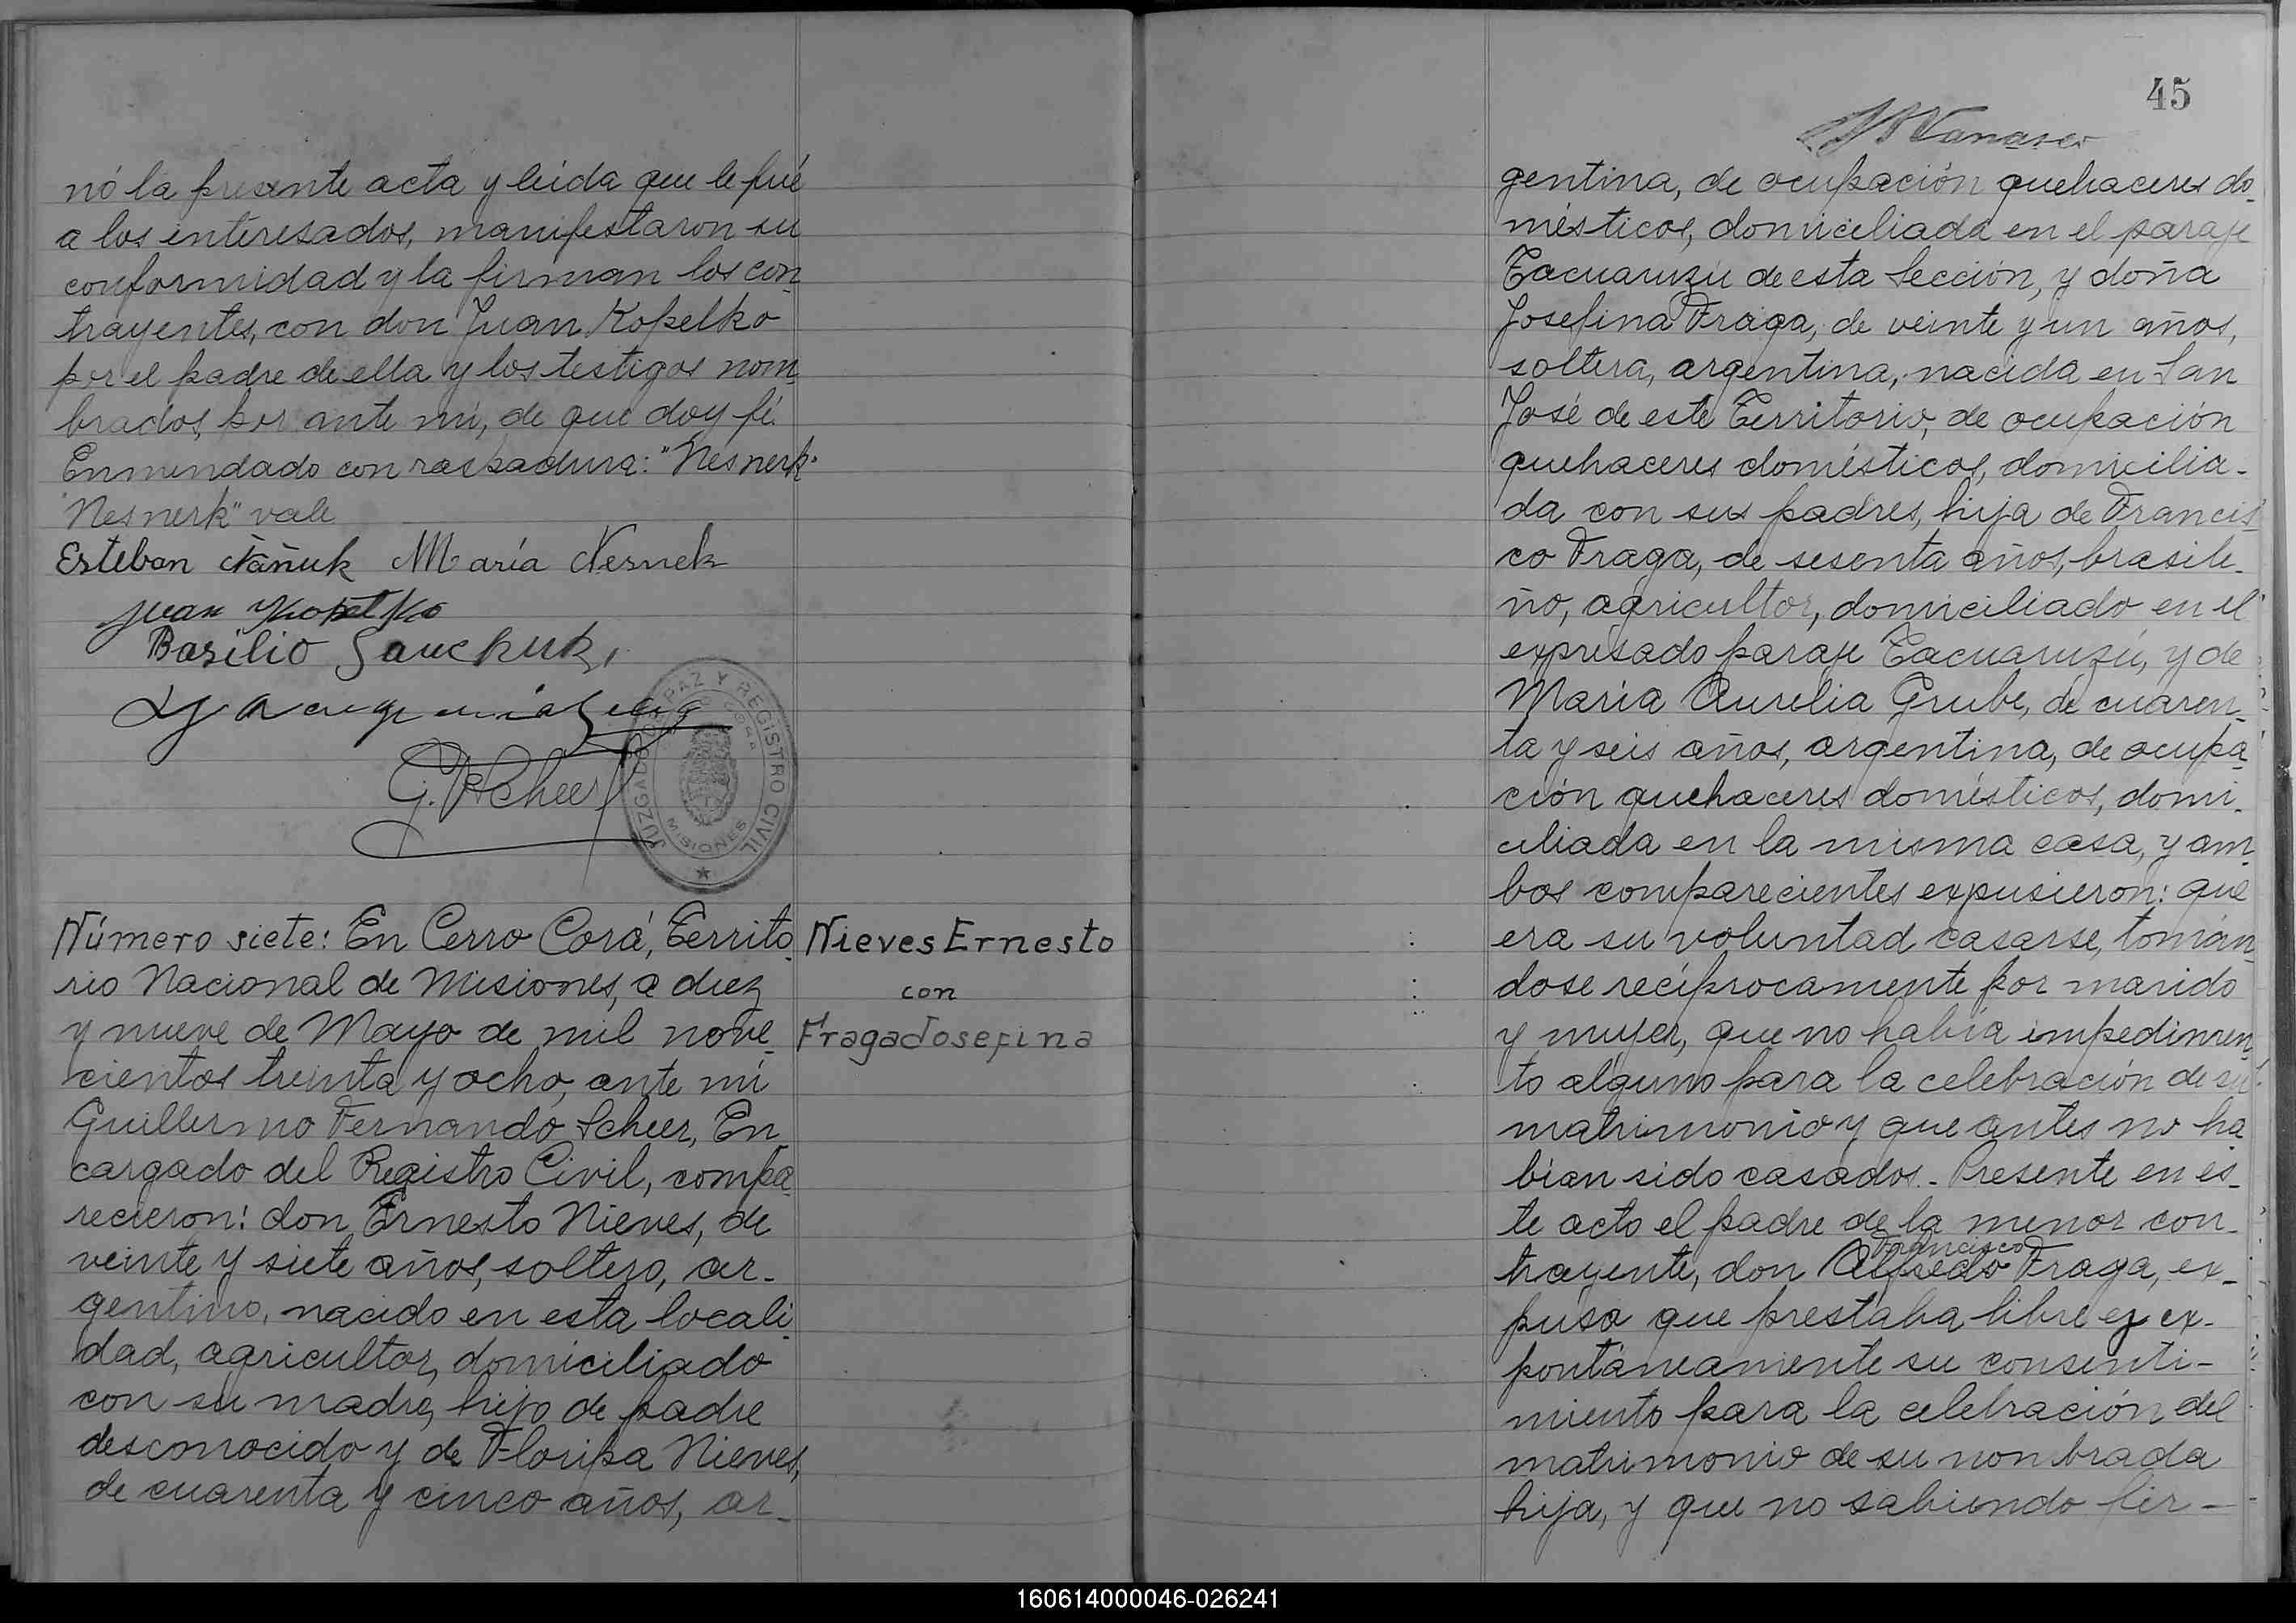 nó la presente acta y leída que le fué
a los interesados, manifestaron su
conformidad y la firman los con
trayentes, con don Juan Kopelko
por el padre de ella y los testigos nom
brados, por ante mí, de que doy fé.
Enmendado con raspadura: "Nesnerk"
"Nesnerk" vale
Esteban Ñañuk María Nesnek
Juan Kopelko
Basilio Sauchuk
G. F. Scheer
JUZGADO DE PAZ Y REGISTRO CIVIL
MISIONES
Número siete: En Cerro Corá, Territo
rio Nacional de Misiones, a diez
y nueve de Mayo de mil nove
cientos treinta y ocho, ante mí
Guillermo Fernando Scheer, En
cargado del Registro Civil, compa
recieron: don Ernesto Nieves, de
veinte y siete años, soltero, ar-
gentino, nacido en esta locali
dad, agricultor, domiciliado
con su madre, hijo de padre
desconocido y de Floripa Nieves,
de cuarenta y cinco años, ar-
Nieves Ernesto
con
Fraga Josefina
45
gentina, de ocupación quehaceres do
mésticos, domiciliada en el paraje
Tacuaruzú de esta Sección, y doña
Josefina Fraga, de veinte y un años,
soltera, argentina, nacida en San
José de este Territorio, de ocupación
quehaceres domésticos, domicilia-
da con sus padres, hija de Francis
co Fraga, de sesenta años, brasile-
ño, agricultor, domiciliado en el
expresado paraje Tacuaruzú, y de
María Aurelia Grube, de cuaren-
ta y seis años, argentina, de ocupa
ción quehaceres domésticos, domi-
ciliada en la misma casa, y am
bos comparecientes expusieron: que
era su voluntad casarse, tomán
dose recíprocamente por marido
y mujer, que no había impedimen
to alguno para la celebración de su
matrimonio y que antes no ha
bían sido casados.- Presente en es-
te acto el padre de la menor con-
Francisco
trayente, don Alfredo Fraga, ex-
puso que prestaba libre y ex-
pontáneamente su consenti-
miento para la celebración del
matrimonio de su nombrada
hija, y que no sabiendo fir-
160614000046-026241